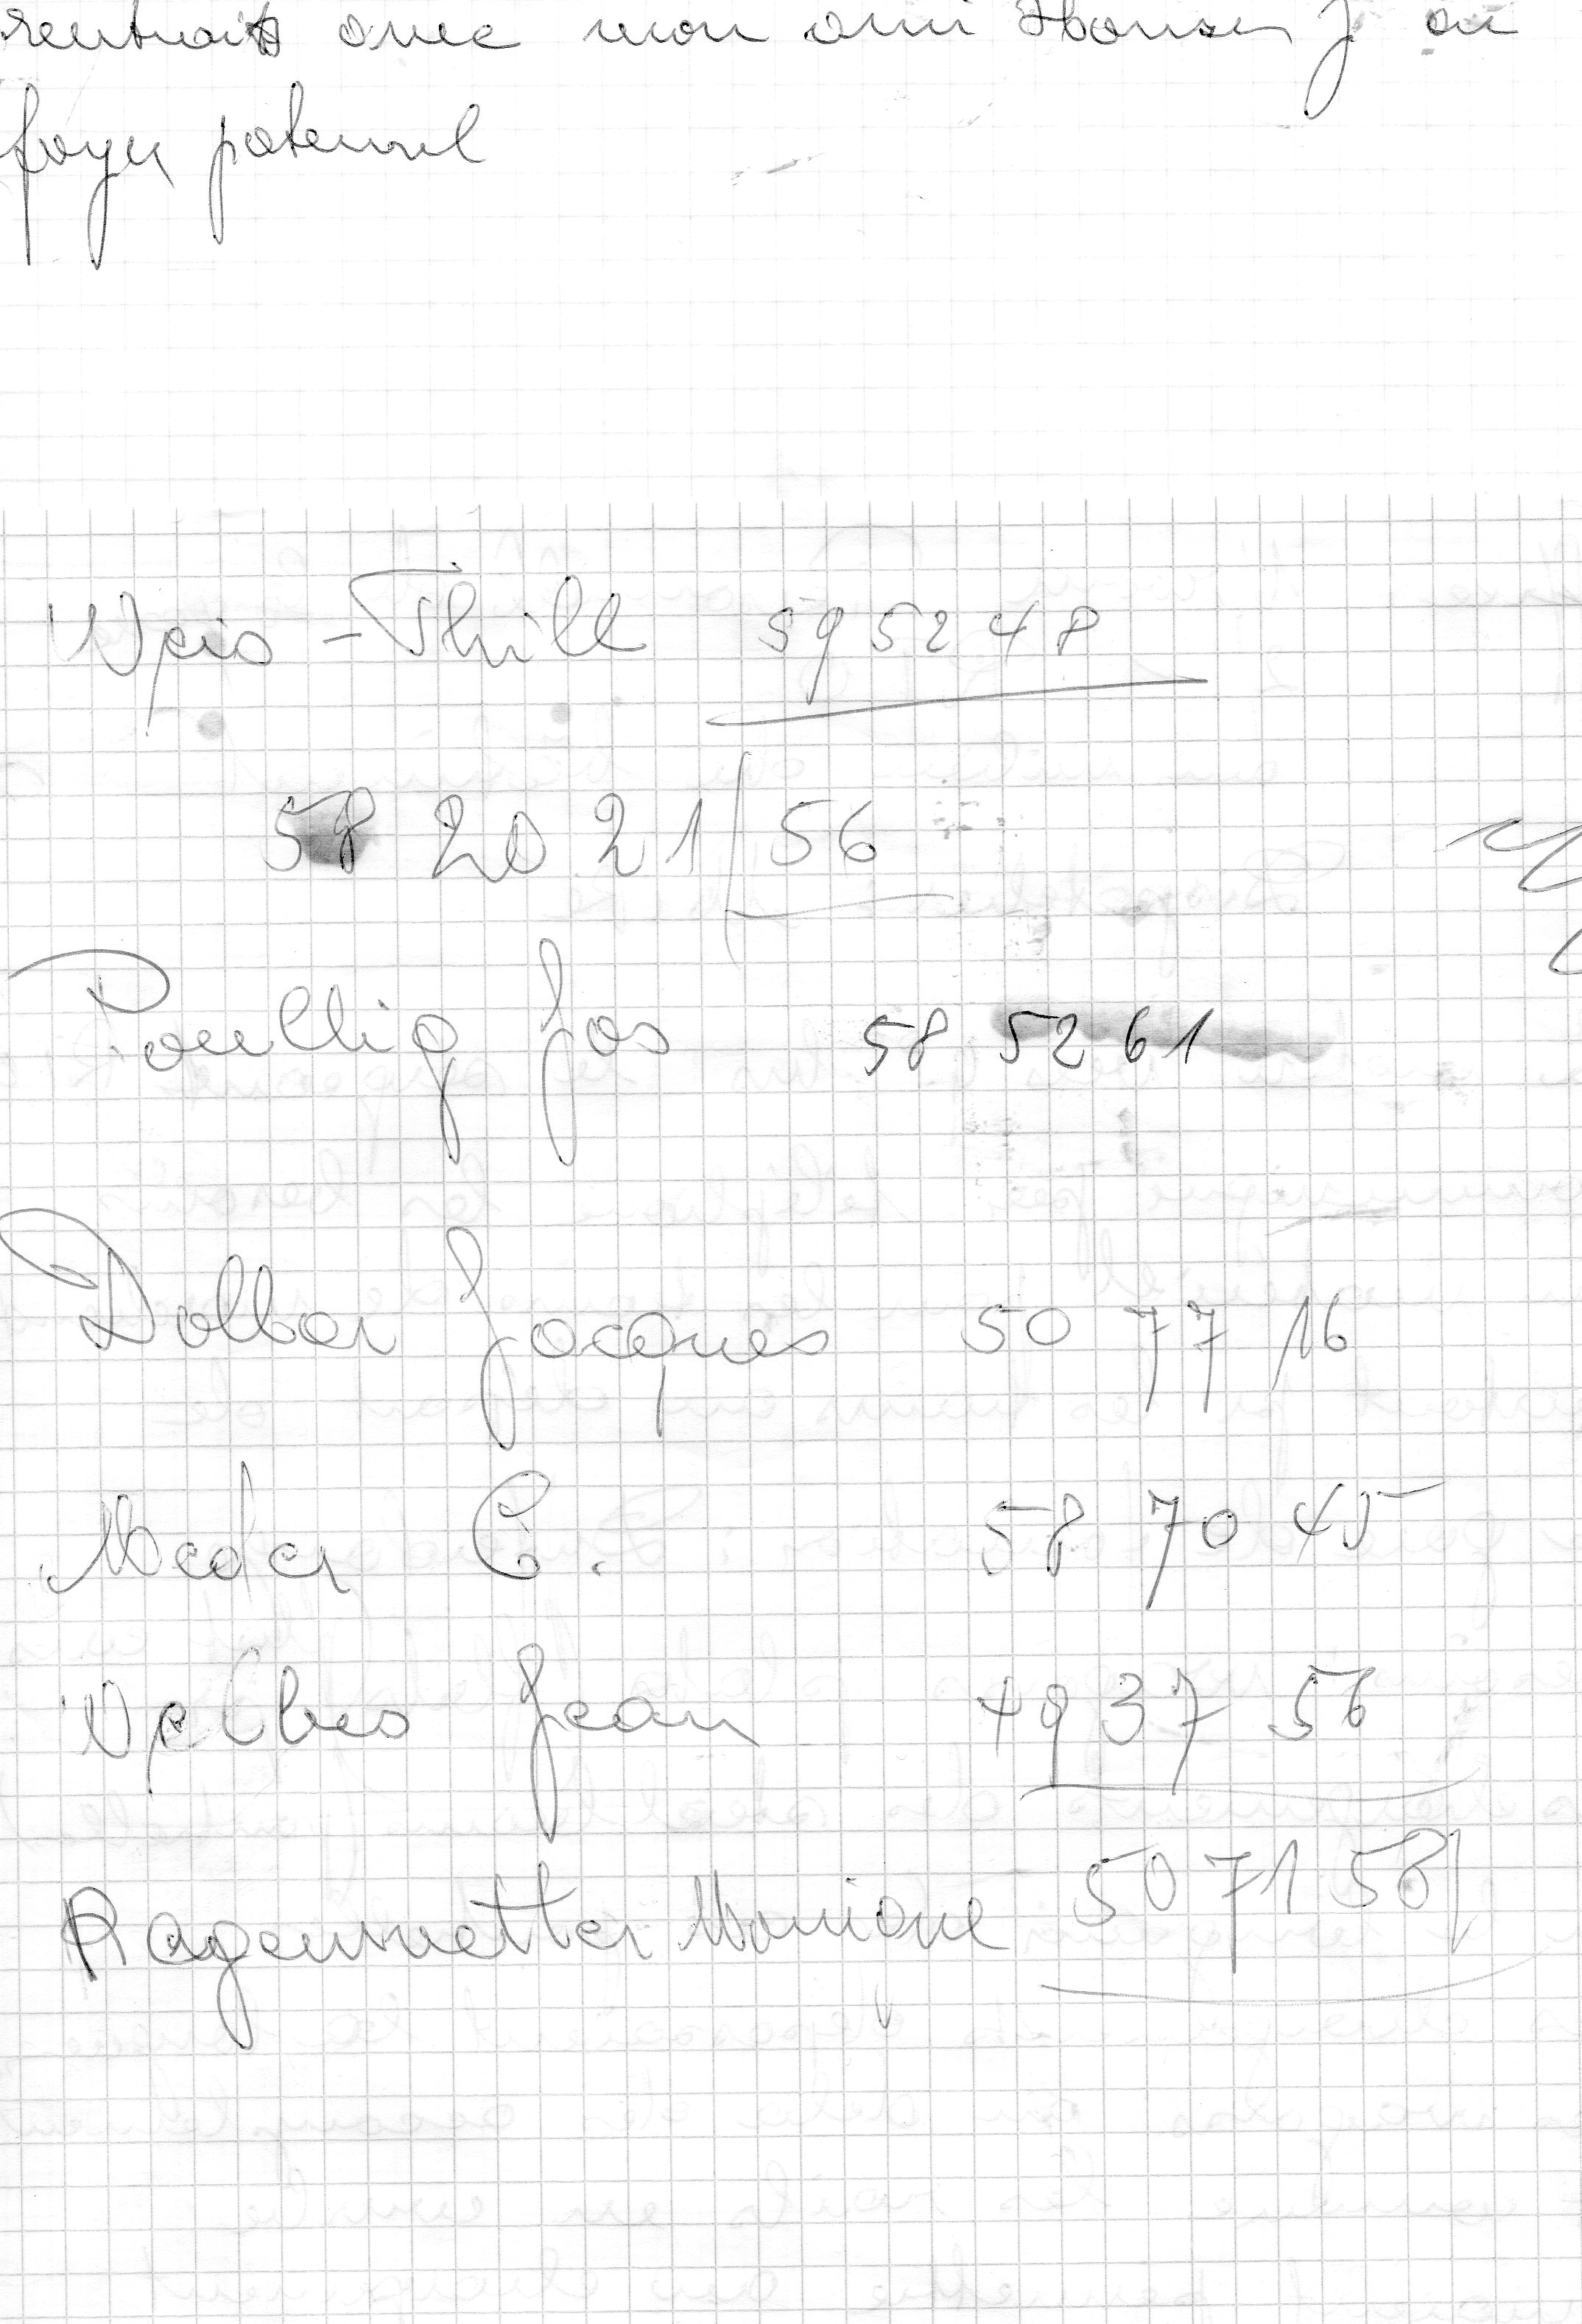 rentrait avec mon ami Hansen J au
foyer paternel
Weis - Thill 595248
58 20 21/56
Poullig Jos 58 52 61
Dollar Jacques 50 77 16
Meder C. 58 70 45
Welbes Jean 49 37 56
Ragenwetter Monique 50 71 58